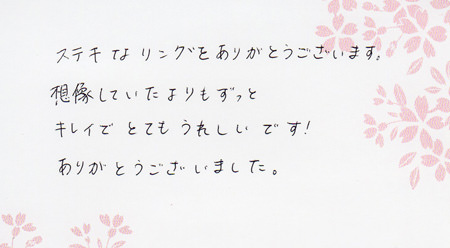 ステキなリングをありがとうございます。
想像していたよりもずっと
キレイでとてもうれしいです!
ありがとうございました。